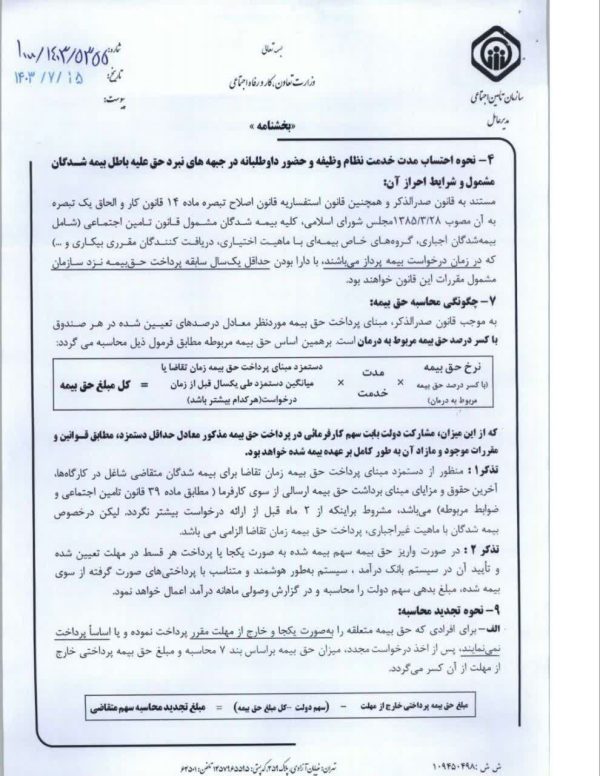 بسمه تعالی
شماره: ۱۰۰۰/۱۴۰۳/۵۳۵۵
وزارت تعاون، کار و رفاه اجتماعی
تاریخ: ۱۴۰۳/۷/۱۵
پیوست:
سازمان تامین اجتماعی
مدیرعامل
«بخشنامه»
۴- نحوه احتساب مدت خدمت نظام وظیفه و حضور داوطلبانه در جبهه های نبرد حق علیه باطل بیمه شدگان
مشمول و شرایط احراز آن:
مستند به قانون صدرالذکر و همچنین قانون استفساریه قانون اصلاح تبصره ماده ۱۴ قانون کار و الحاق یک تبصره
به آن مصوب ۱۳۸۵/۳/۲۸مجلس شورای اسلامی، کلیه بیمه شدگان مشمول قانون تامین اجتماعی (شامل
بیمه‌شدگان اجباری، گروه‌های خاص بیمه‌ای با ماهیت اختیاری، دریافت کنندگان مقرری بیکاری و ...)
که در زمان درخواست بیمه پرداز می‌باشند، با دارا بودن حداقل یک‌سال سابقه پرداخت حق‌بیمه نزد سازمان
مشمول مقررات این قانون خواهند بود.
۷- چگونگی محاسبه حق بیمه:
به موجب قانون صدرالذکر، مبنای پرداخت حق بیمه موردنظر معادل درصدهای تعیین شده در هر صندوق
با کسر درصد حق بیمه مربوط به درمان است. برهمین اساس حق بیمه مربوطه مطابق فرمول ذیل محاسبه می گردد:
نرخ حق بیمه
(با کسر درصد حق بیمه
مربوط به درمان)
×
مدت
خدمت
×
دستمزد مبنای پرداخت حق بیمه زمان تقاضا یا
میانگین دستمزد طی یکسال قبل از زمان
درخواست(هرکدام بیشتر باشد)
=
کل مبلغ حق بیمه
که از این میزان، مشارکت دولت بابت سهم کارفرمائی در پرداخت حق بیمه مذکور معادل حداقل دستمزد، مطابق قوانین و
مقررات موجود و مازاد آن به طور کامل بر عهده بیمه شده خواهد بود.
تذکر۱: منظور از دستمزد مبنای پرداخت حق بیمه زمان تقاضا برای بیمه شدگان متقاضی شاغل در کارگاه‌ها،
آخرین حقوق و مزایای مبنای برداشت حق بیمه ارسالی از سوی کارفرما ( مطابق ماده ۳۹ قانون تامین اجتماعی و
ضوابط مربوطه) می‌باشد، مشروط براینکه از ۲ ماه قبل از ارائه درخواست بیشتر نگردد. لیکن درخصوص
بیمه شدگان با ماهیت غیراجباری، پرداخت حق بیمه زمان تقاضا الزامی می باشد.
تذکر ۲: در صورت واریز حق بیمه سهم بیمه شده به صورت یکجا یا پرداخت هر قسط در مهلت تعیین شده
و تأیید آن در سیستم بانک درآمد ، سیستم به‌طور هوشمند و متناسب با پرداختی‌های صورت گرفته از سوی
بیمه شده، مبلغ بدهی سهم دولت را محاسبه و در گزارش وصولی ماهانه درآمد اعمال خواهد نمود.
۹- نحوه تجدید محاسبه:
الف- برای افرادی که حق بیمه متعلقه را به‌صورت یکجا و خارج از مهلت مقرر پرداخت نموده و یا اساساً پرداخت
نمی‌نمایند، پس از اخذ درخواست مجدد، میزان حق بیمه براساس بند ۷ محاسبه و مبلغ حق بیمه پرداختی خارج
از مهلت از آن کسر می‌گردد.
مبلغ حق بیمه پرداختی خارج از مهلت - (سهم دولت -کل مبلغ حق بیمه) = مبلغ تجدید محاسبه سهم متقاضی
ش ش: ۱۰۹۴۵۰۴۹۸